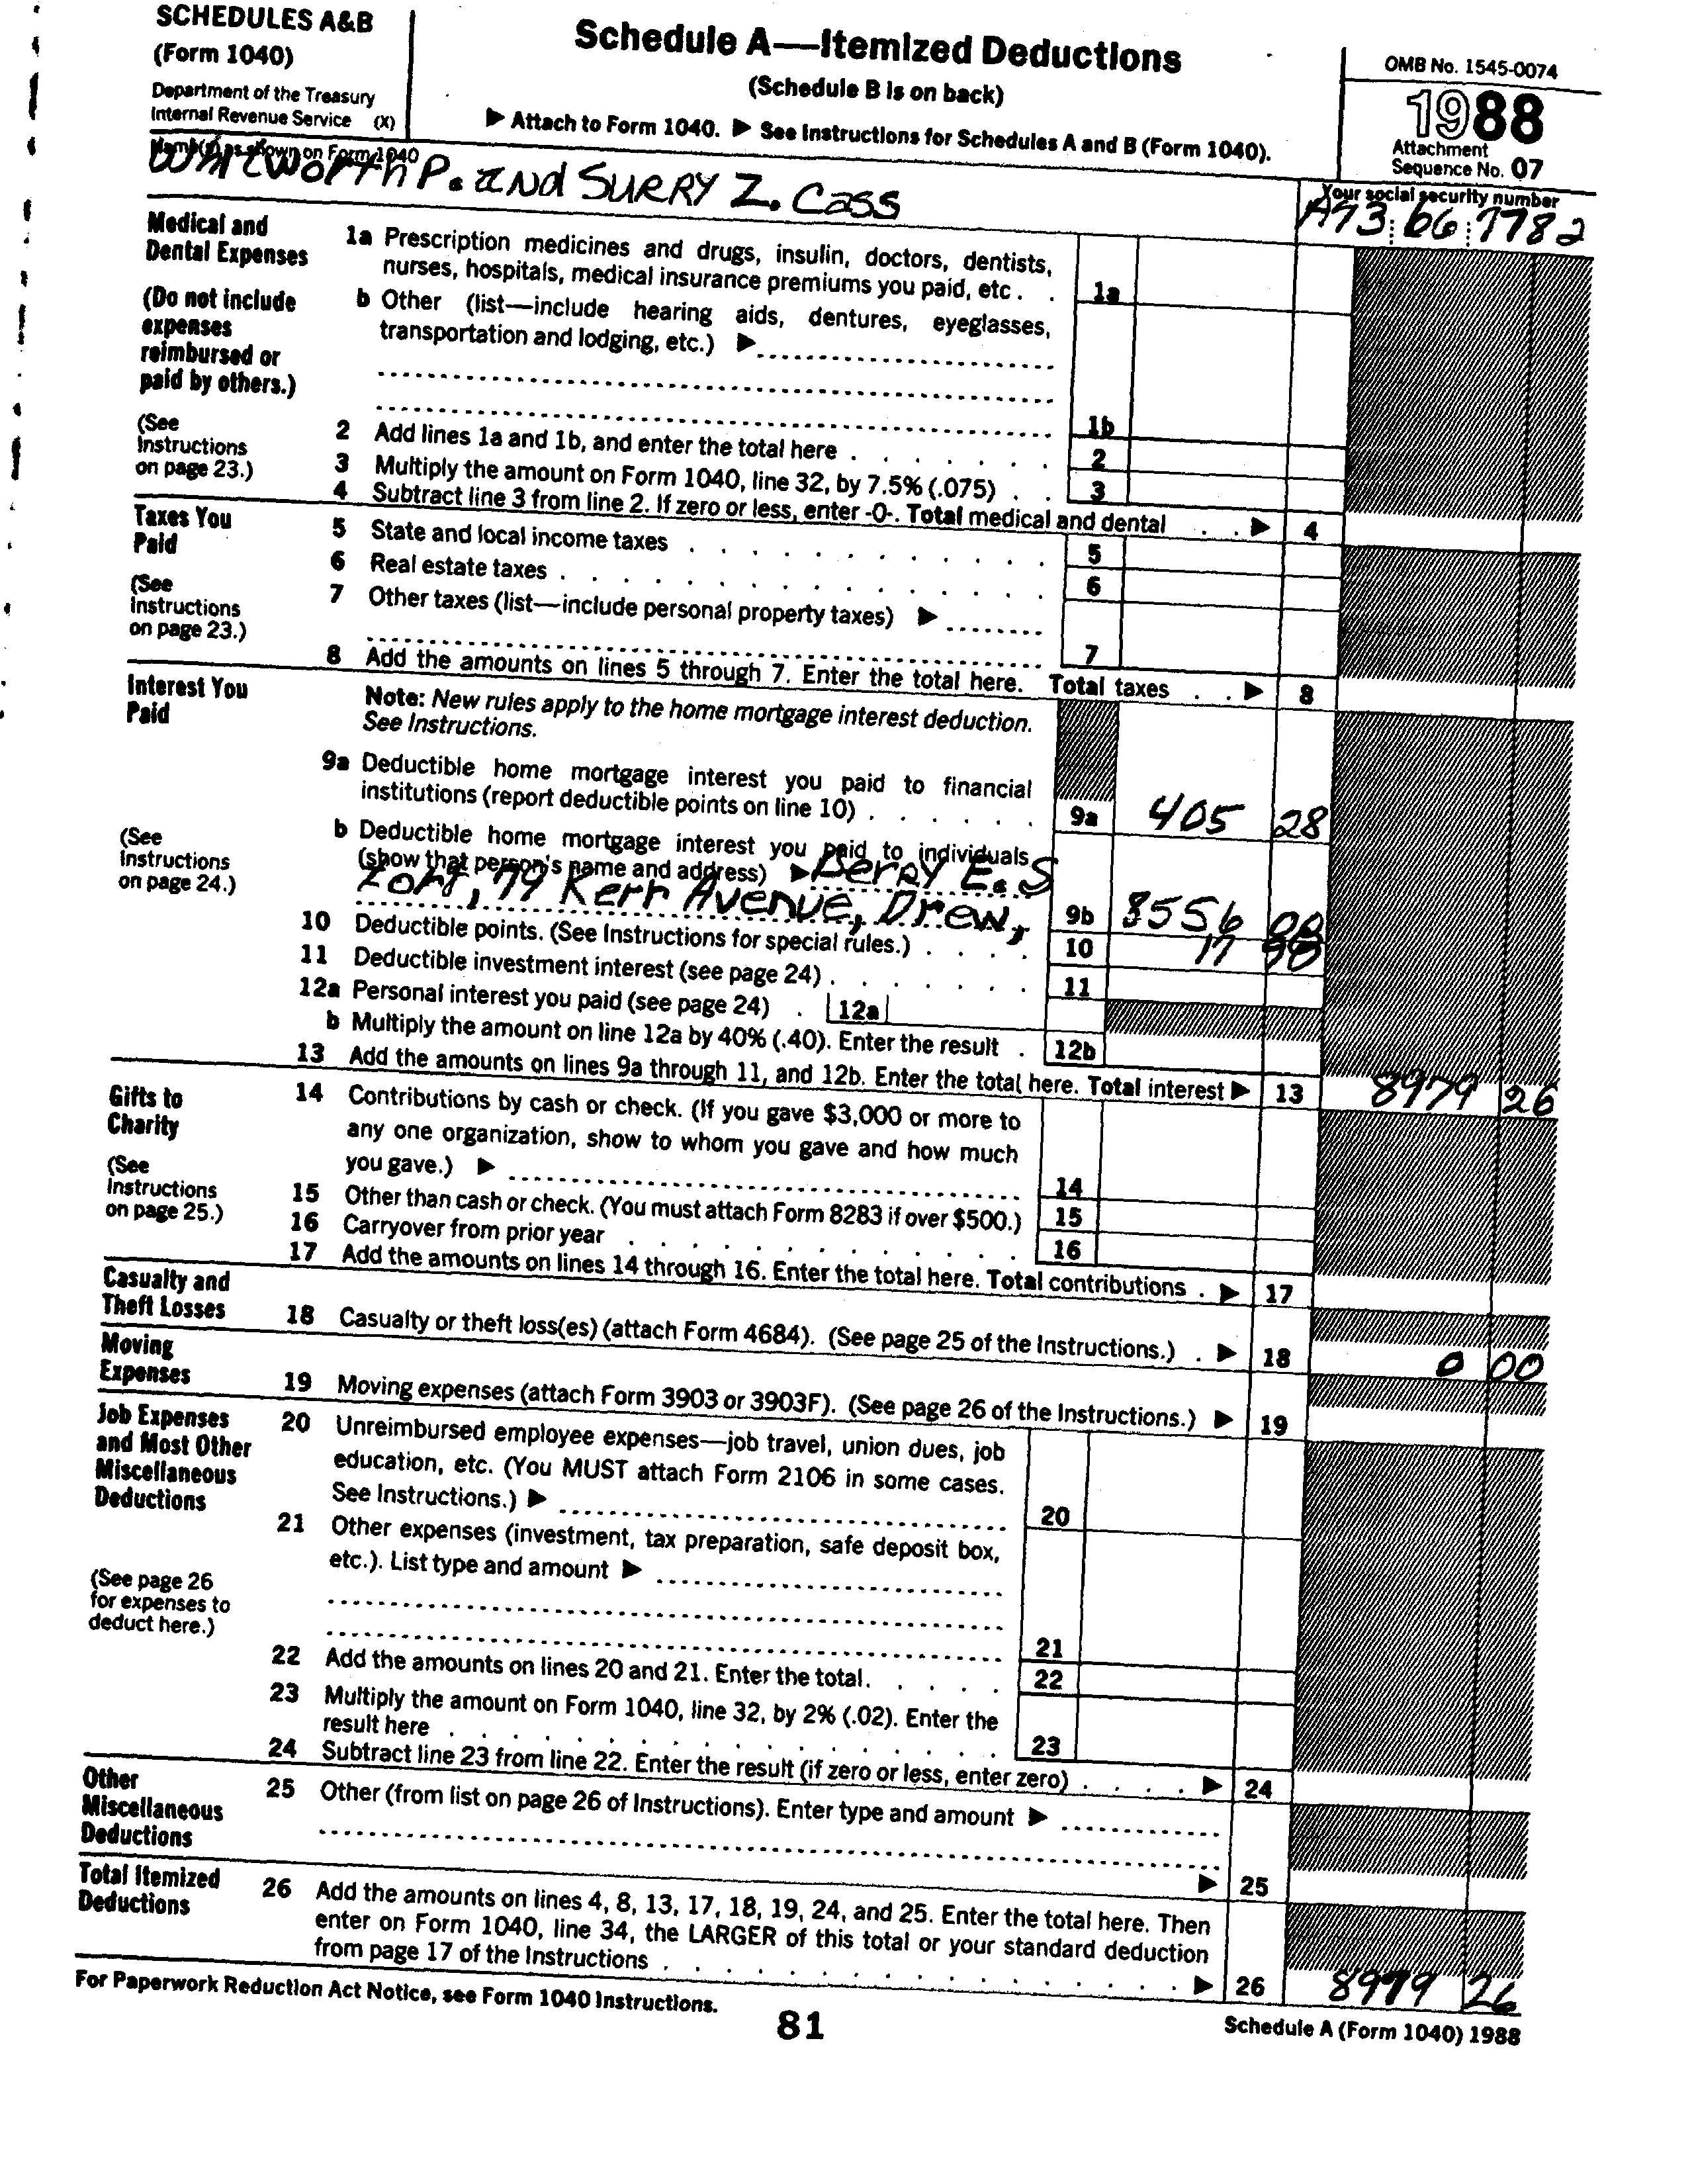 SCHEDULES A&B
(Form 1040)
Department of the Treasury
Internal Revenue Service (X)
Schedule A—Itemized Deductions
(Schedule B is on back)
▶ Attach to Form 1040. ▶ See Instructions for Schedules A and B (Form 1040).
OMB No. 1545-0074
1988
Attachment
Sequence No. 07
Name(s) as shown on Form 1040
P. and SURRY Z. Cass
Your social security number
A73 66 7782
Medical and
Dental Expenses
(Do not include
expenses
reimbursed or
paid by others.)
(See
Instructions
on page 23.)
1a Prescription medicines and drugs, insulin, doctors, dentists,
nurses, hospitals, medical insurance premiums you paid, etc . . 1a
b Other (list—include hearing aids, dentures, eyeglasses,
transportation and lodging, etc.) ▶
1b
2 Add lines 1a and 1b, and enter the total here . . . . . . . 2
3 Multiply the amount on Form 1040, line 32, by 7.5% (.075) . . 3
4 Subtract line 3 from line 2. If zero or less, enter -0-. Total medical and dental . . ▶ 4
Taxes You
Paid
(See
Instructions
on page 23.)
5 State and local income taxes . . . . . . . . . . . 5
6 Real estate taxes . . . . . . . . . . . . . . . 6
7 Other taxes (list—include personal property taxes) ▶
7
8 Add the amounts on lines 5 through 7. Enter the total here. Total taxes . . ▶ 8
Interest You
Paid
(See
Instructions
on page 24.)
Note: New rules apply to the home mortgage interest deduction.
See Instructions.
9a Deductible home mortgage interest you paid to financial
institutions (report deductible points on line 10) . . . . . . 9a 405 28
b Deductible home mortgage interest you paid to individuals
(show that person's name and address) ▶ Berry E. S
Zort, 79 Kerr Avenue, Drew, 9b 8556 00
10 Deductible points. (See Instructions for special rules.) . . . . 10 17 98
11 Deductible investment interest (see page 24) . . . . . . . 11
12a Personal interest you paid (see page 24) . 12a
b Multiply the amount on line 12a by 40% (.40). Enter the result . 12b
13 Add the amounts on lines 9a through 11, and 12b. Enter the total here. Total interest ▶ 13 8979 26
Gifts to
Charity
(See
Instructions
on page 25.)
14 Contributions by cash or check. (If you gave $3,000 or more to
any one organization, show to whom you gave and how much
you gave.) ▶ 14
15 Other than cash or check. (You must attach Form 8283 if over $500.) 15
16 Carryover from prior year . . . . . . . . . . . . 16
17 Add the amounts on lines 14 through 16. Enter the total here. Total contributions . ▶ 17
Casualty and
Theft Losses
18 Casualty or theft loss(es) (attach Form 4684). (See page 25 of the Instructions.) . ▶ 18 0 00
Moving
Expenses
19 Moving expenses (attach Form 3903 or 3903F). (See page 26 of the Instructions.) ▶ 19
Job Expenses
and Most Other
Miscellaneous
Deductions
(See page 26
for expenses to
deduct here.)
20 Unreimbursed employee expenses—job travel, union dues, job
education, etc. (You MUST attach Form 2106 in some cases.
See Instructions.) ▶ 20
21 Other expenses (investment, tax preparation, safe deposit box,
etc.). List type and amount ▶
21
22 Add the amounts on lines 20 and 21. Enter the total. . . . . 22
23 Multiply the amount on Form 1040, line 32, by 2% (.02). Enter the
result here . . . . . . . . . . . . . . . . . 23
24 Subtract line 23 from line 22. Enter the result (if zero or less, enter zero) . . . . ▶ 24
Other
Miscellaneous
Deductions
25 Other (from list on page 26 of Instructions). Enter type and amount ▶
▶ 25
Total Itemized
Deductions
26 Add the amounts on lines 4, 8, 13, 17, 18, 19, 24, and 25. Enter the total here. Then
enter on Form 1040, line 34, the LARGER of this total or your standard deduction
from page 17 of the Instructions . . . . . . . . . . . . . . . . ▶ 26 8979 26
For Paperwork Reduction Act Notice, see Form 1040 Instructions.
81
Schedule A (Form 1040) 1988